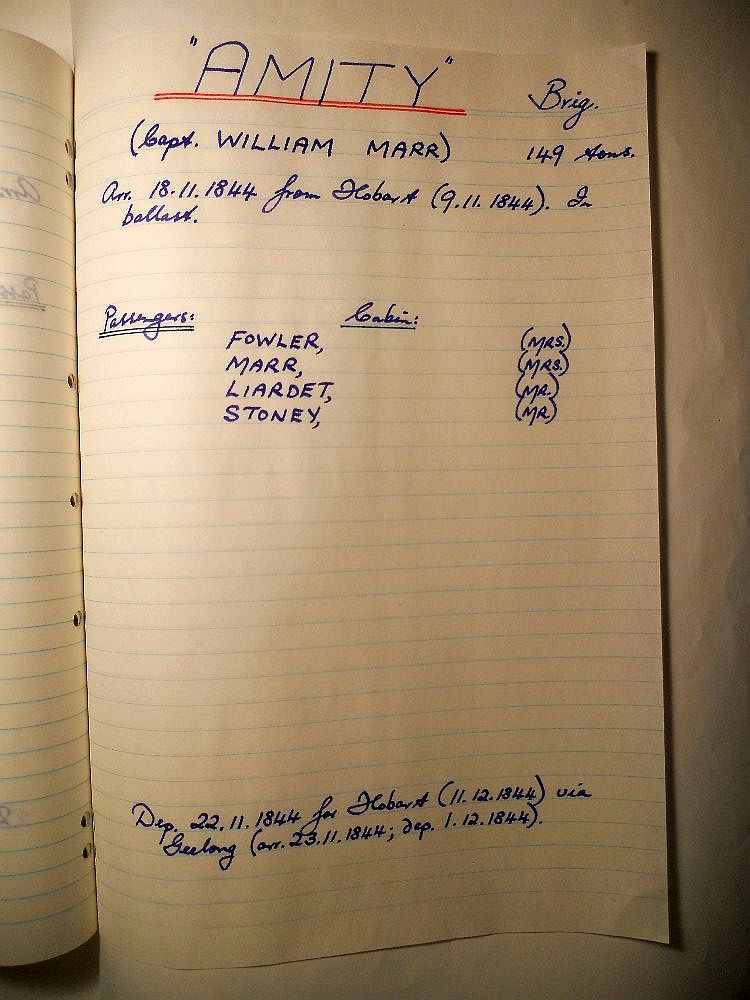 "AMITY"
Brig.
(Capt. WILLIAM MARR)
149 tons.
Arr. 18.11.1844 from Hobart (9.11.1844). In
ballast.
Passengers:
Cabin:
FOWLER, (MRS.)
MARR, (MRS.)
LIARDET, (MR.)
STONEY, (MR)
Dep. 22.11.1844 for Hobart (11.12.1844) via
Geelong (arr. 23.11.1844; dep. 1.12.1844).